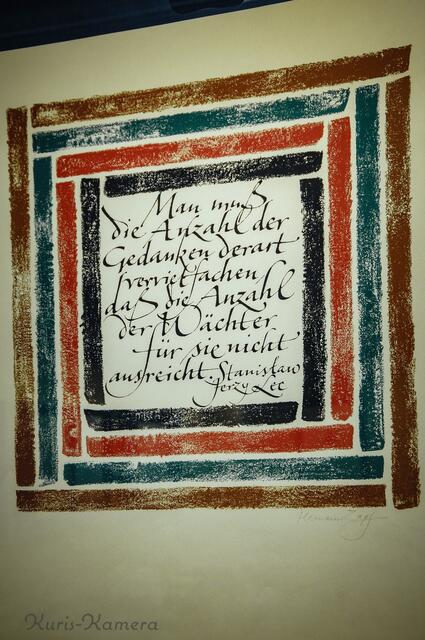 Man muß
die Anzahl der
Gedanken derart
vervielfachen
daß die Anzahl
der Wächter
für sie nicht
ausreicht Stanisław
Jerzy Lec
Hermann Zapf
Kuris-Kamera